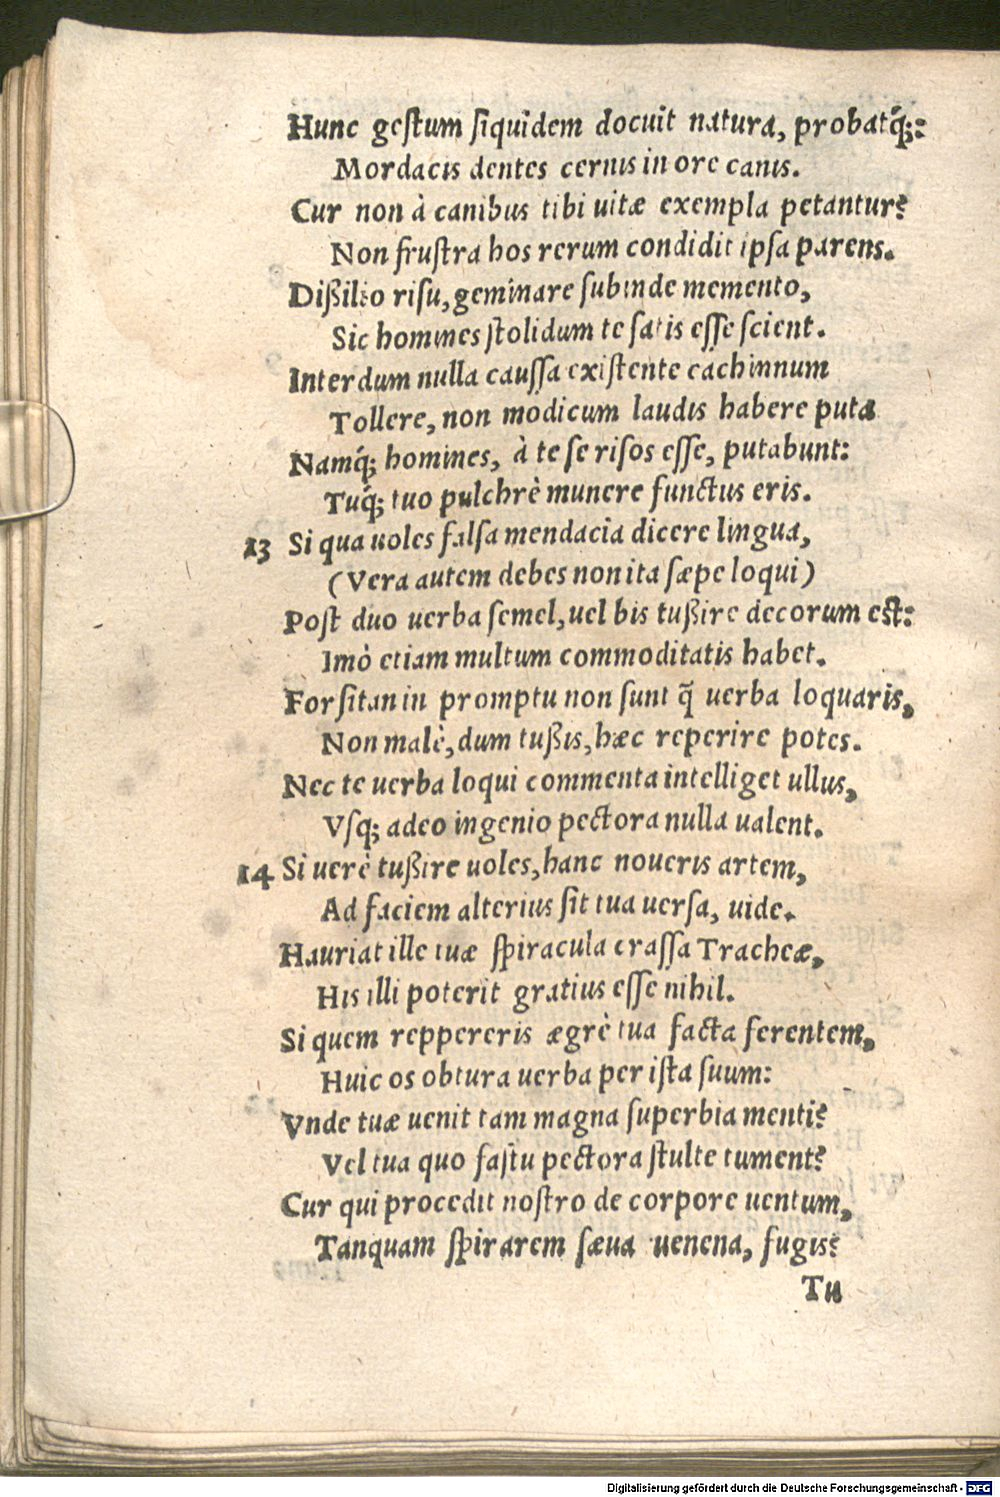 Hunc geſtum ſiquidem docuit natura, probatq́;:
Mordacis dentes cernis in ore canis.
Cur non à canibus tibi uitæ exempla petantur?
Non fruſtra hos rerum condidit ipſa parens.
Dißilio riſu, geminare ſubinde memento,
Sic homines ſtolidum te ſatis eſſe ſcient.
Interdum nulla cauſſa exiſtente cachinnum
Tollere, non modicum laudis habere puta
Namq́; homines, à te ſe riſos eſſe, putabunt:
Tuq́; tuo pulchrè munere functus eris.
13 Si qua uoles falſa mendacia dicere lingua,
(Vera autem debes non ita ſæpe loqui)
Poſt duo uerba ſemel, uel bis tußire decorum eſt:
Imò etiam multum commoditatis habet.
Forſitan in promptu non ſunt q̃ uerba loquaris,
Non malè, dum tußis, hæc reperire potes.
Nec te uerba loqui commenta intelliget ullus,
Vſq; adeo ingenio pectora nulla ualent.
14 Si uerè tußire uoles, hanc noueris artem,
Ad faciem alterius ſit tua uerſa, uide.
Hauriat ille tuæ ſpiracula craſſa Tracheæ,
His illi poterit gratius eſſe nihil.
Si quem reppereris ægrè tua facta ferentem,
Huic os obtura uerba per iſta ſuum:
Vnde tuæ uenit tam magna ſuperbia menti?
Vel tua quo faſtu pectora ſtulte tument?
Cur qui procedit noſtro de corpore uentum,
Tanquam ſpirarem ſæua uenena, fugis?
Tu
Digitalisierung gefördert durch die Deutsche Forschungsgemeinschaft - DFG